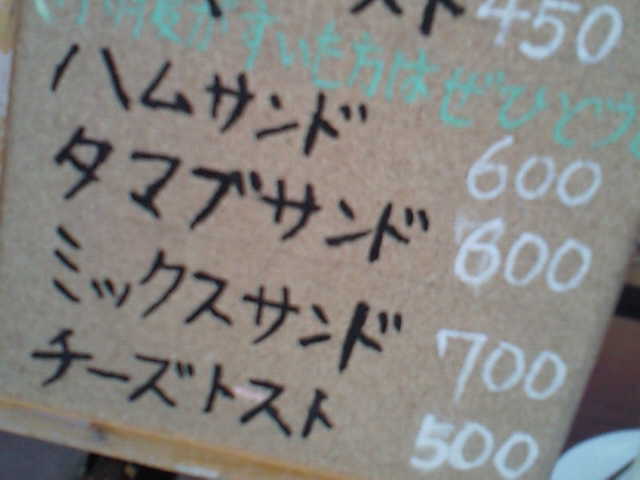 スト 450
がすいた方はぜひどう
ハムサンド 600
タマブサンド 600
ミックスサンド 700
チーズトスト 500